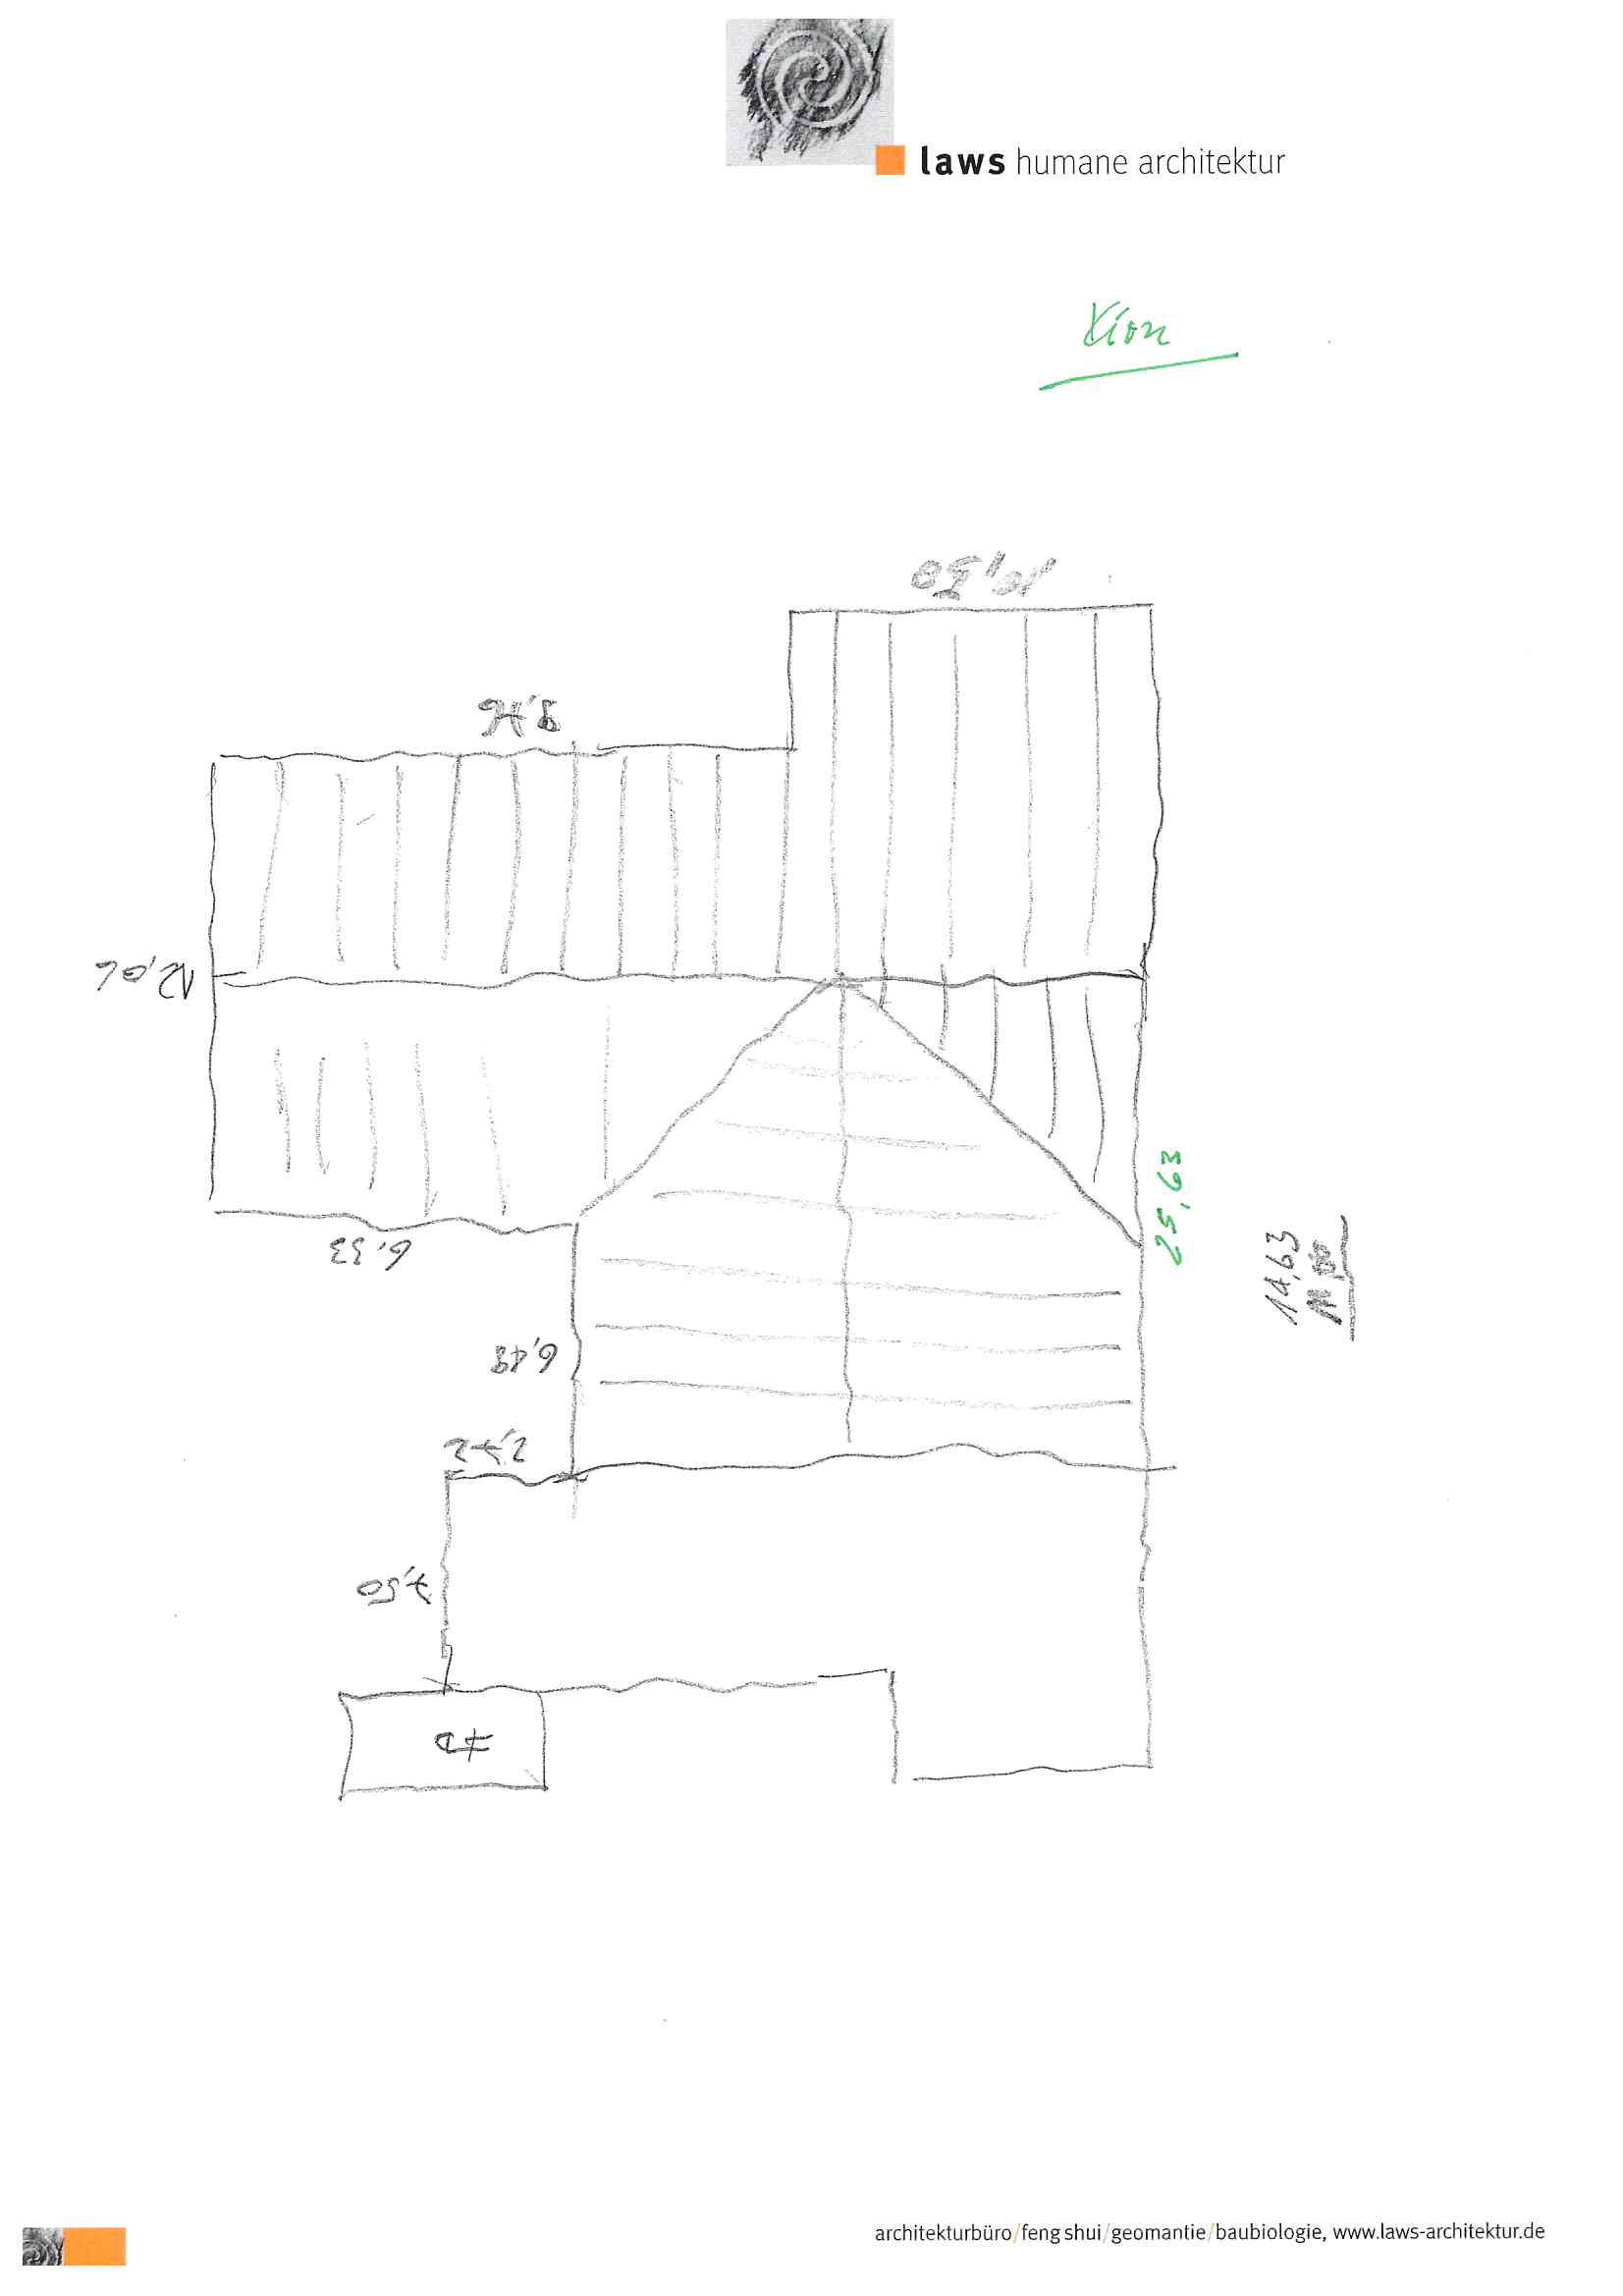 laws humane architektur
10,50
12,06
6,33
25,63
14,63
6,48
2,72
7,50
architekturbüro/feng shui/geomantie/baubiologie, www.laws-architektur.de